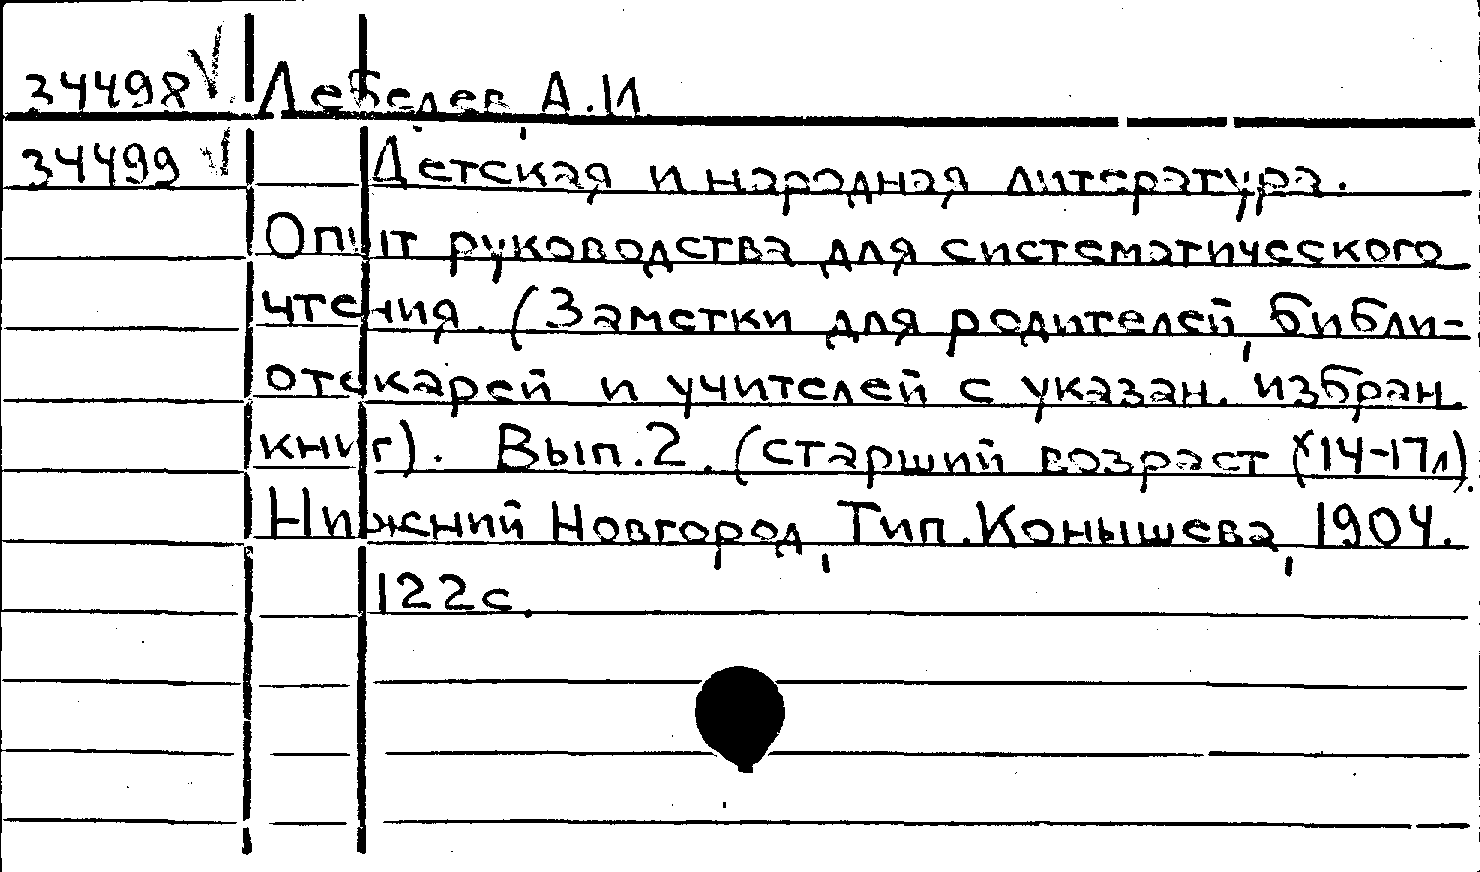 34498 √ Лебедев, А.И.
34499 √ Детская и народная литература.
Опыт руководства для систематического
чтения. (Заметки для родителей, библи-
отекарей и учителей с указан. избран.
книг). Вып.2. (старший возраст (14-17л).
Нижний Новгород, Тип.Конышева, 1904.
122с.